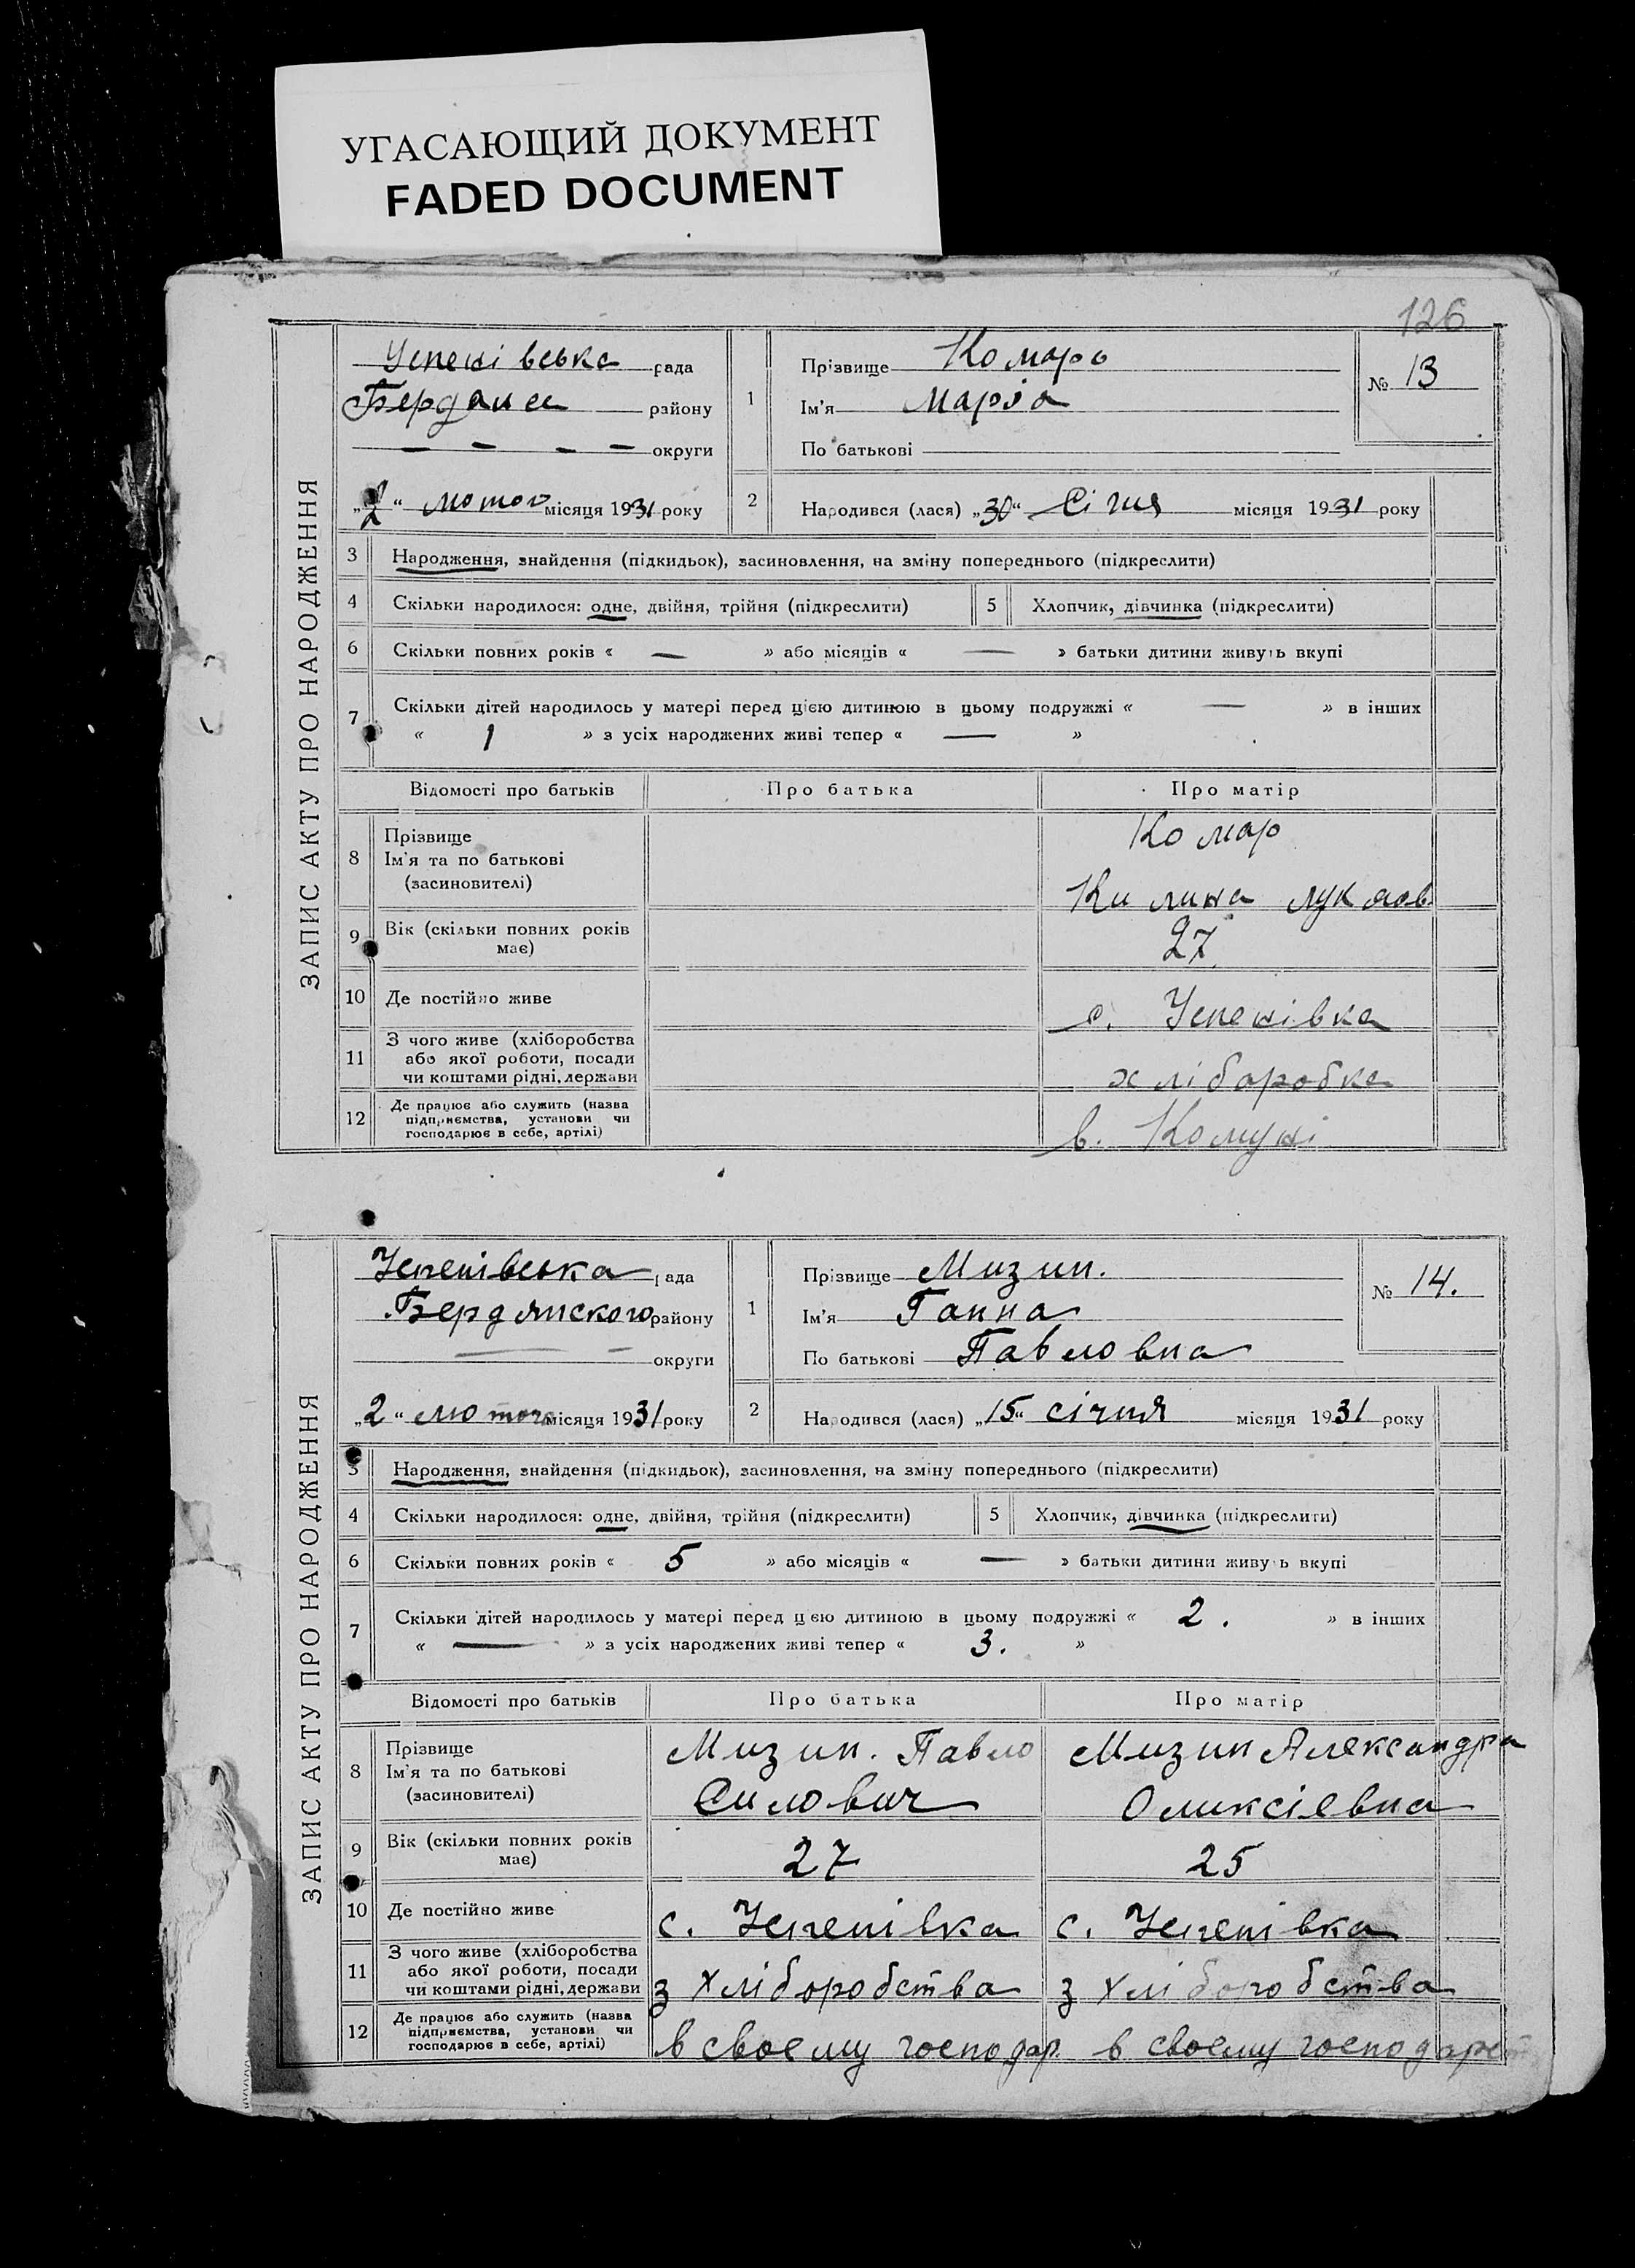 УГАСАЮЩИЙ ДОКУМЕНТ
FADED DOCUMENT
126
ЗАПИС АКТУ ПРО НАРОДЖЕННЯ
Успенівська рада
Бердянсь району
— — — — округи
„2“ лютого місяця 1931 року
1
Прізвище Комарь
Ім'я Марія
По батькові
№ 13
2 Народився (лася) „30“ Січня місяця 1931 року
3 Народження, знайдення (підкидьок), засиновлення, на зміну попереднього (підкреслити)
4 Скільки народилося: одне, двійня, трійня (підкреслити) 5 Хлопчик, дівчинка (підкреслити)
6 Скільки повних років « — » або місяців « — » батьки дитини живуть вкупі
7 Скільки дітей народилось у матері перед цією дитиною в цьому подружжі « — » в інших
« 1 » з усіх народжених живі тепер « — »
Відомості про батьків Про батька Про матір
8 Прізвище
Ім'я та по батькові
(засиновителі)
Комар
Килина Луков
9 Вік (скільки повних років
має)
27
10 Де постійно живе с. Успенівка
11 З чого живе (хліборобства
або якої роботи, посади
чи коштами рідні, держави
хліборобка
12 Де працює або служить (назва
підприємства, установи чи
господарює в себе, артілі)
в. Комуні
ЗАПИС АКТУ ПРО НАРОДЖЕННЯ
Успенівська рада
Бердянского району
— — округи
„2“ лютого місяця 1931 року
1
Прізвище Мизин.
Ім'я Ганна
По батькові Павловна
№ 14.
2 Народився (лася) „15“ січня місяця 1931 року
3 Народження, знайдення (підкидьок), засиновлення, на зміну попереднього (підкреслити)
4 Скільки народилося: одне, двійня, трійня (підкреслити) 5 Хлопчик, дівчинка (підкреслити)
6 Скільки повних років « 5 » або місяців « — » батьки дитини живуть вкупі
7 Скільки дітей народилось у матері перед цією дитиною в цьому подружжі « 2. » в інших
« — » з усіх народжених живі тепер « 3. »
Відомості про батьків Про батька Про матір
8 Прізвище
Ім'я та по батькові
(засиновителі)
Мизин. Павло
Силович
Мизин Александра
Оликсіевна
9 Вік (скільки повних років
має)
27 25
10 Де постійно живе с. Успенівка с. Успенівка
11 З чого живе (хліборобства
або якої роботи, посади
чи коштами рідні, держави
з хліборобства з хліборобства
12 Де працює або служить (назва
підприємства, установи чи
господарює в себе, артілі)
в своему господар. в своему господарст